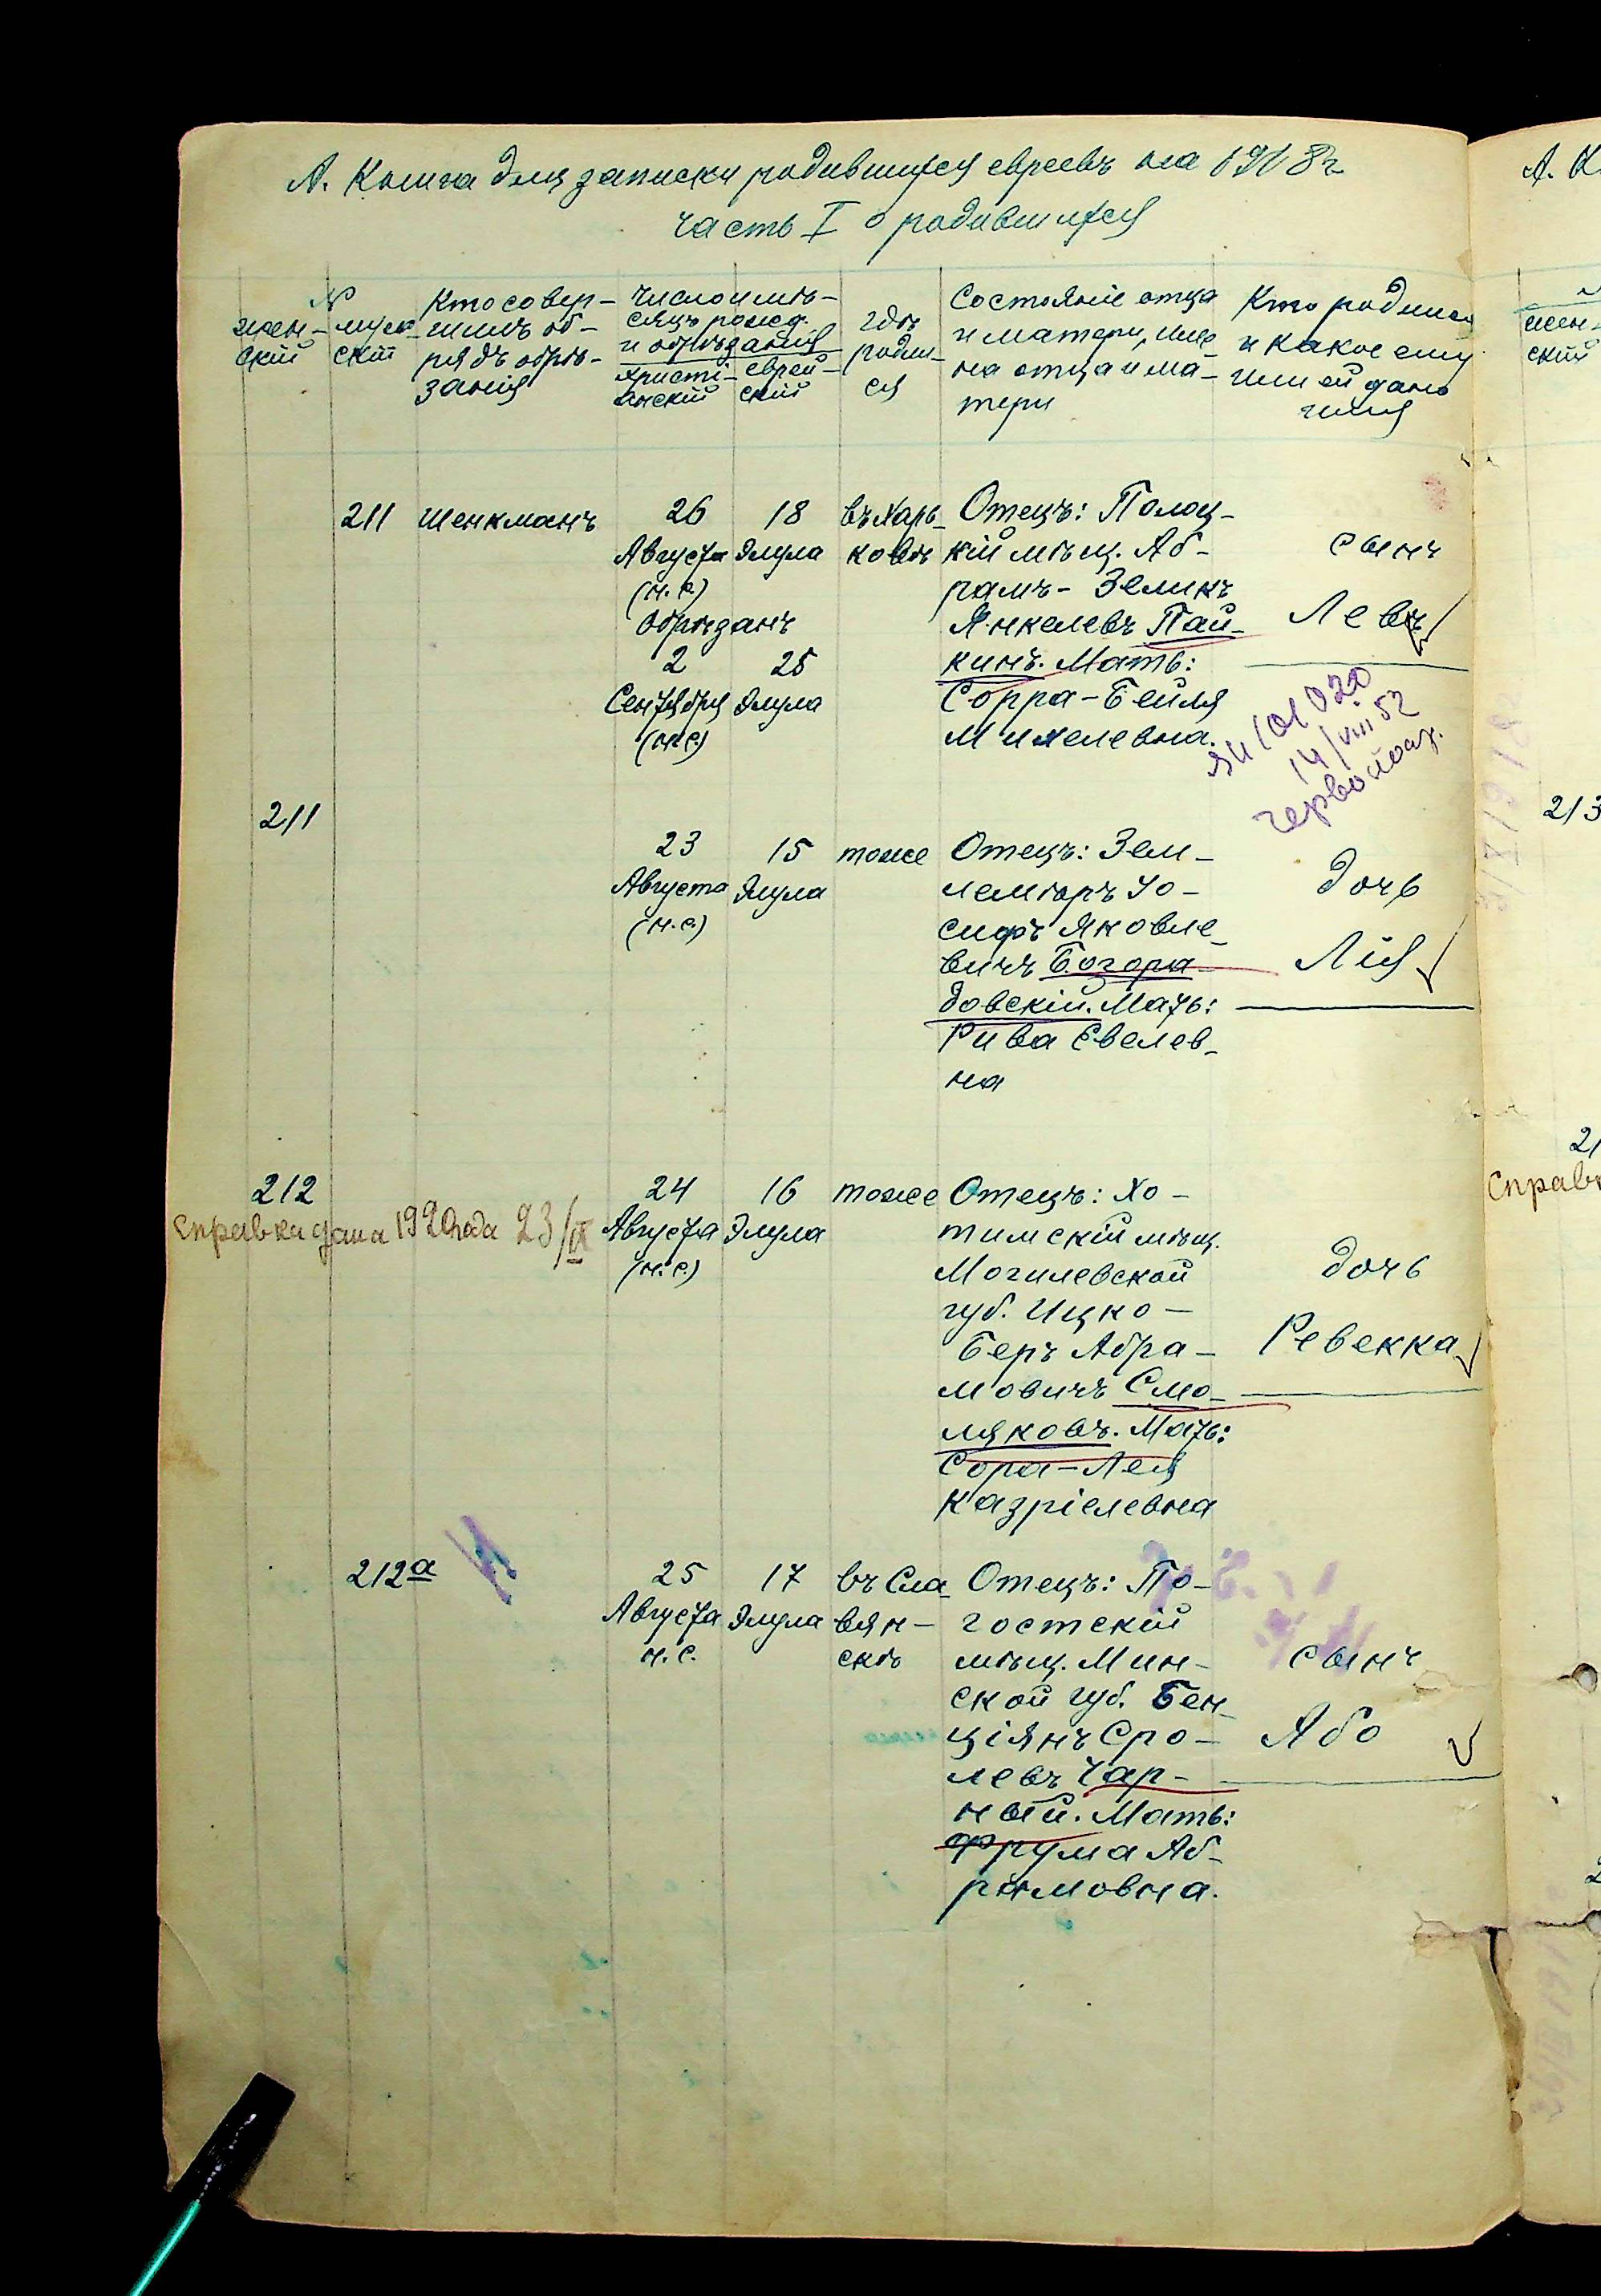 А. Книга для записки родившихся евреевъ на 1918 г
часть I о родившихся
№
жен-
скій
муж-
скій
Кто совер-
шилъ об-
рядъ обрѣ-
занія
Число и мѣ-
сяцъ рожд.
и обрѣзанія
христі-
анскій
еврей-
скій
гдѣ
родил-
ся
Состояніе отца
и матери, име-
на отца и ма-
тери
Кто родился
и какое ему
или ей дано
имя
211
Шенкманъ
26
Августа
(н.с.)
Обрѣзанъ
2
Сентября
(н.с.)
18
Элула
25
Элула
въ Харь-
ковѣ
Отецъ: Полоц-
кій мѣщ. Аб-
рамъ - Зеликъ
Янкелевъ Пай-
кинъ. Мать:
Сорра-Бейля
Михелевна.
сынъ
Левъ
14/VIII 52
211
23
Августа
(н.с.)
15
Элула
тоже
Отецъ: Зем-
лемѣръ Іо-
сифъ Яковле-
вичъ Богора-
довскій. Мать:
Рива Евелев-
на
дочь
Лія
212
Справка дана 1920 года 23/IX
24
Августа
(н.с.)
16
Элула
тоже
Отецъ: Хо-
тимскій мѣщ.
Могилевской
губ. Ицко-
Беръ Абра-
мовичъ Смо-
ляковъ. Мать:
Сора-Лея
Казріелевна
дочь
Ревекка
212а
25
Августа
н.с.
17
Элула
въ Сла
вян-
скѣ
Отецъ: По-
гостскій
мѣщ. Мин-
ской губ. Бен-
ціянъ Сро-
левъ Чар-
ный. Мать:
Фрума Аб-
рамовна.
сынъ
Або
А. К
жен-
скій
213
21
Справк